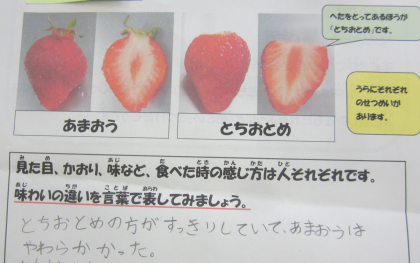 へたをとってあるほうが
「とちおとめ」です。
うらにそれぞれ
のせつめいが
あります。
あまおう
とちおとめ
見た目、かおり、味など、食べた時の感じ方は人それぞれです。
味わいの違いを言葉で表してみましょう。
とちおとめの方がすっきりしていて、あまおうは
やわらかかった。